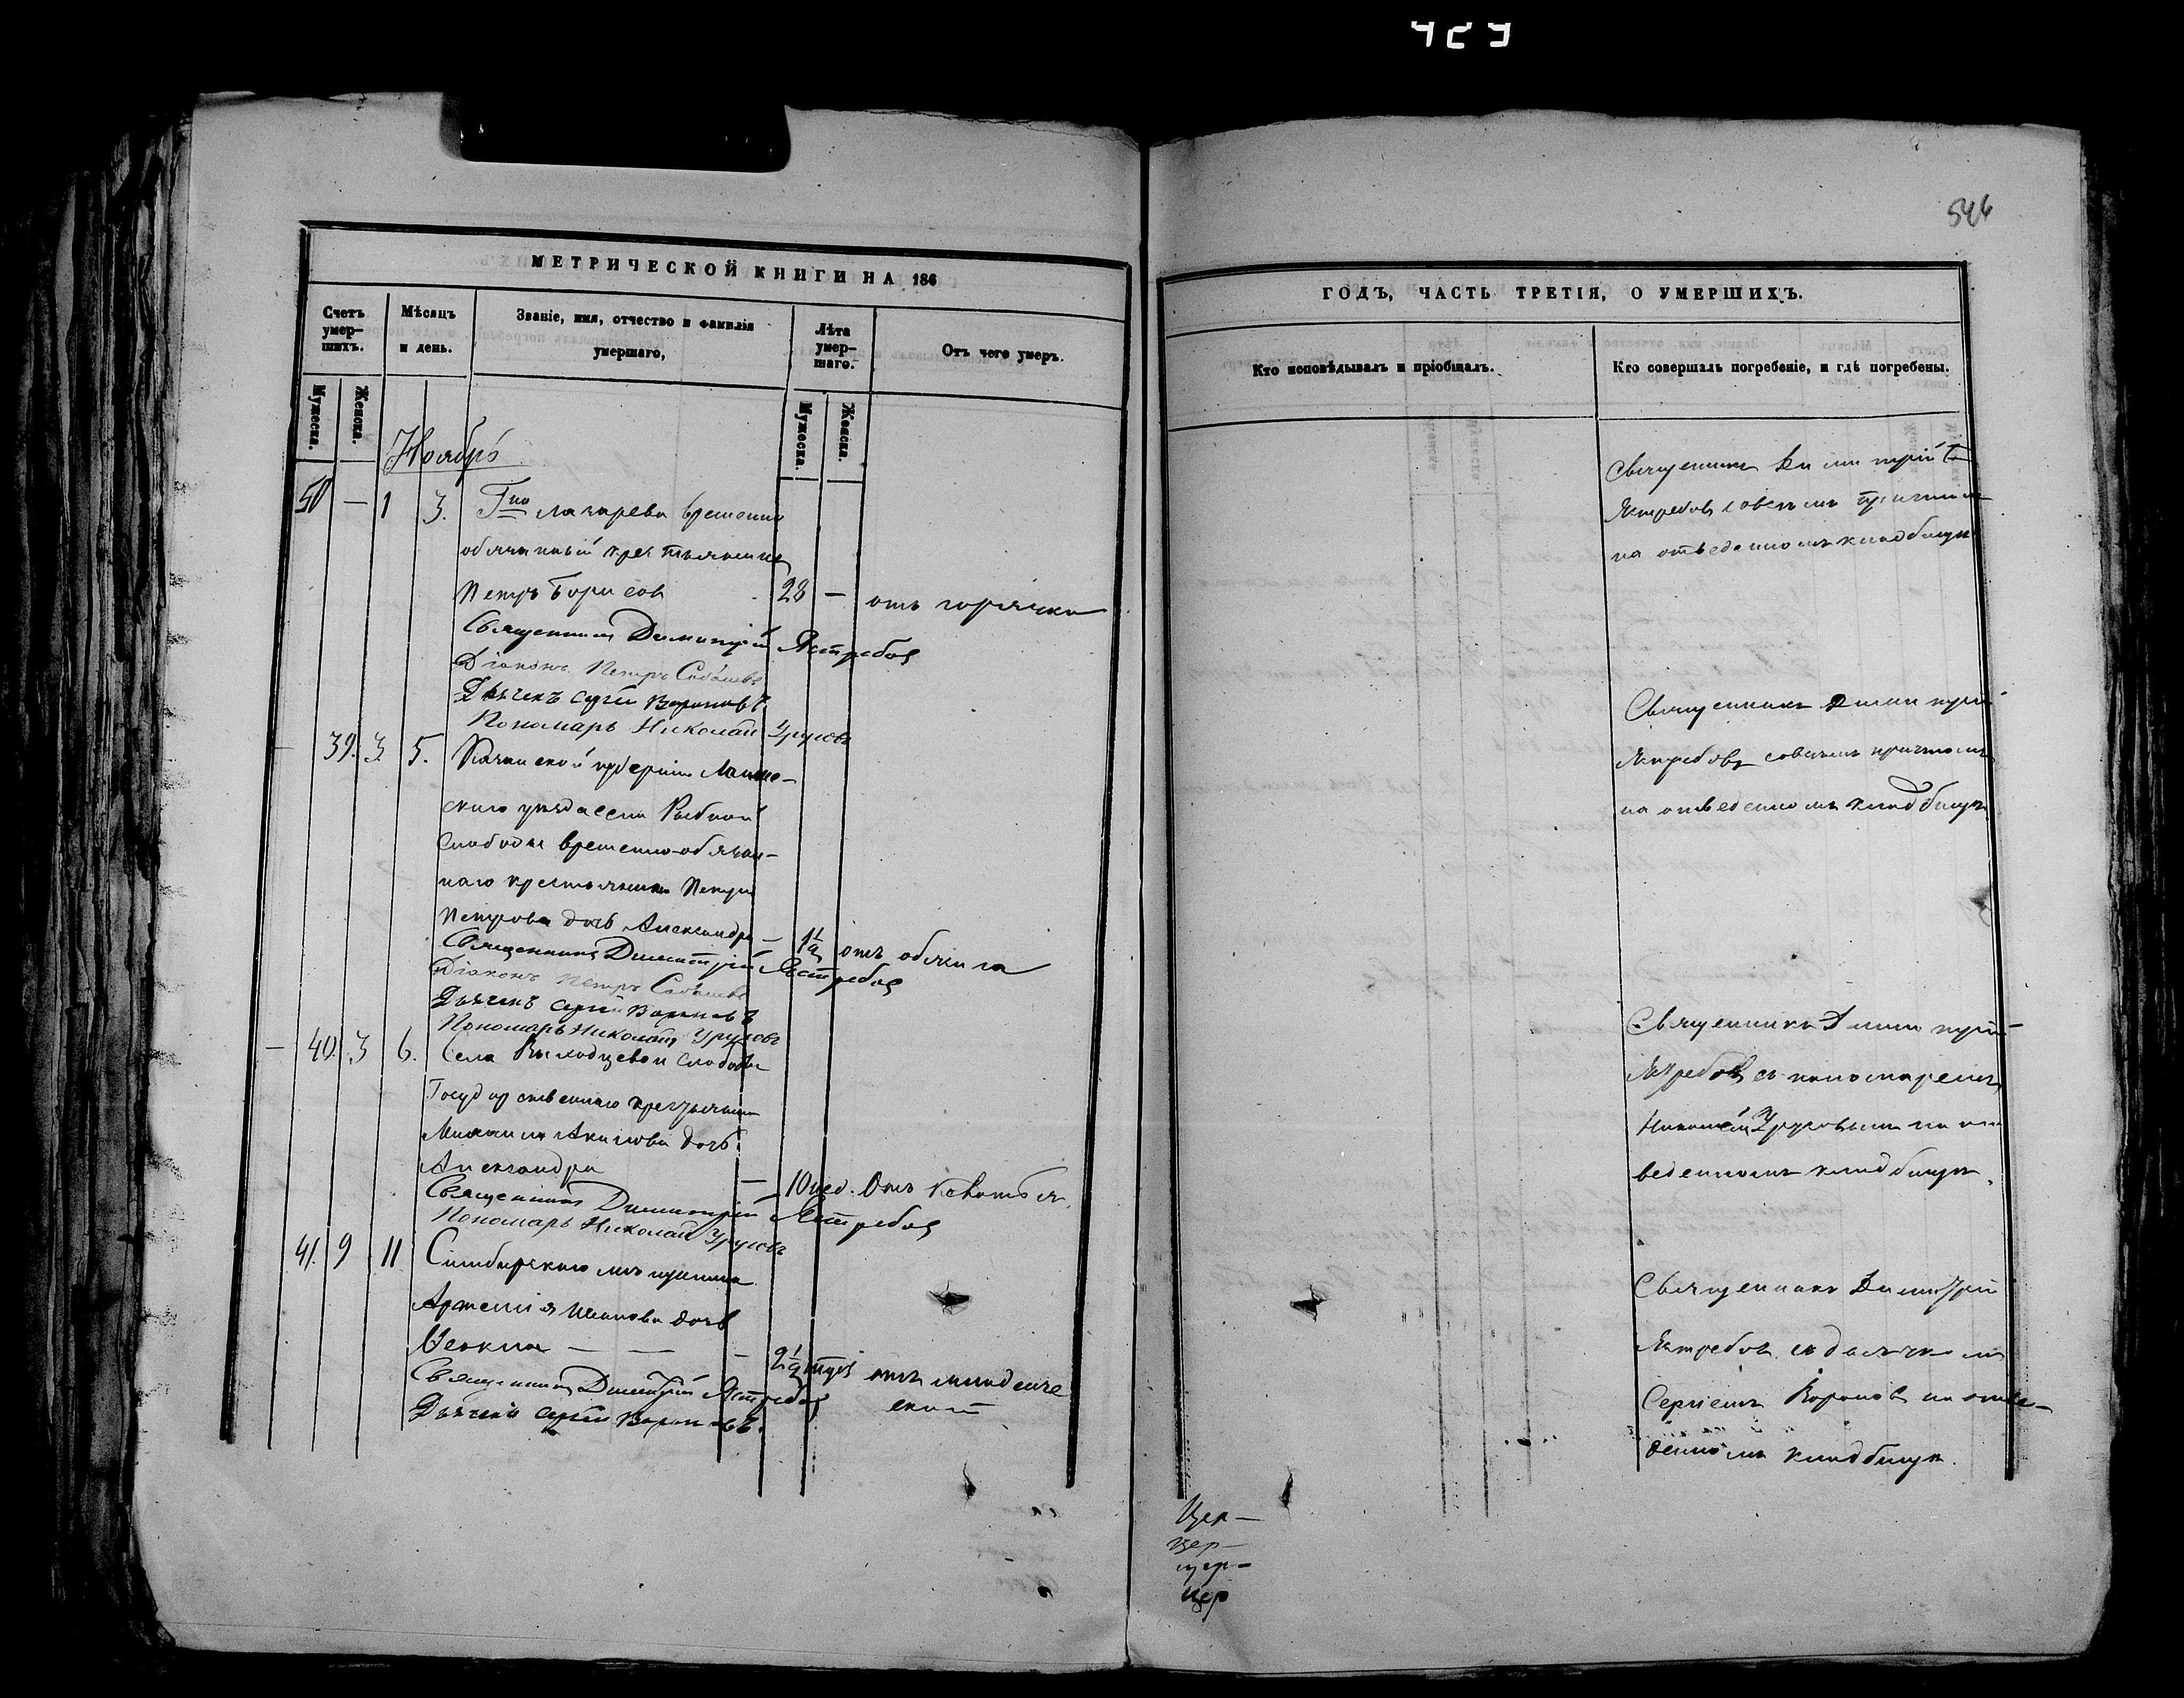 429
546
МЕТРИЧЕСКОЙ КНИГИ НА 186
Счетъ умер-шихъ.
Мѣсяцъ и день.
Званіе, имя, отчество и фамилія умершаго,
Лѣта умер-шаго.
Отъ чего умеръ.
Мужеска.
Женска.
Мужеска.
Женска.
Ноябрь
50 — 1 3. Гна Лазарева временно
обязанный крестьянинъ
Петръ Борисовъ 28 — отъ горячки
Священникъ Димитрій Ястребовъ
Діаконъ Петръ
Дьячекъ Сергій Вороновъ
Пономарь Николай Урусовъ
— 39. 3. 5. Казанской губерніи Лаише-
скаго уѣзда села Рыбной
Слободы временно-обязан-
наго крестьянина Петра
Петрова дочь Александра — 1½ отъ
Священникъ Димитрій Ястребовъ
Діаконъ Петръ
Дьячекъ Сергій Вороновъ
Пономарь Николай Урусовъ
— 40. 3 6. Села слободы
Государственнаго крестьянина
Михаила Акимова дочь
Александра — 10 нед. Отъ
Священникъ Димитрій Ястребовъ
Пономарь Николай Урусовъ
41. 9 11 Симбирскаго мѣщанина
Артемія Иванова дочь
Ѳекла — — — 2½ отъ младенче
ской
Священникъ Димитрій Ястребовъ
Дьячекъ Сергій Вороновъ.
ГОДЪ, ЧАСТЬ ТРЕТІЯ, О УМЕРШИХЪ.
Кто исповѣдывалъ и пріобщалъ.
Кто совершалъ погребеніе, и гдѣ погребены.
Священникъ Димитрій
Ястребовъ совсѣмъ причтомъ
на отведенномъ кладбищѣ
Священникъ Димитрій
Ястребовъ совсѣмъ причтомъ
на отведенномъ кладбищѣ
Священникъ Димитрій
Ястребовъ съ пономаремъ
Николаемъ Урусовымъ на от
веденномъ кладбищѣ.
Священникъ Димитрій
Ястребовъ съ дьячкомъ
Сергіемъ Вороновъ на отве-
денномъ кладбищѣ.
Цер-
цер-
цер-
цер